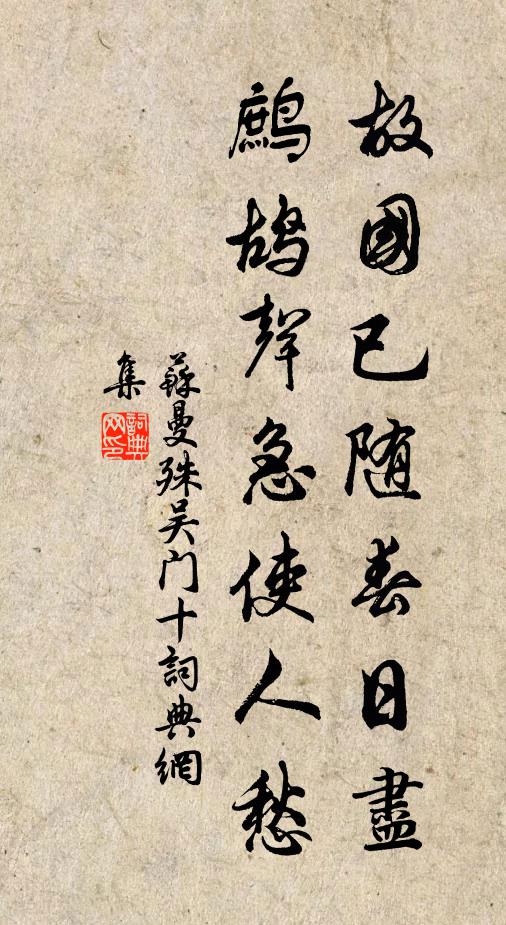 故國已随春日盡
鷓鴣聲急使人愁
蘇曼殊吴门十詞典網
集
詞典
网印